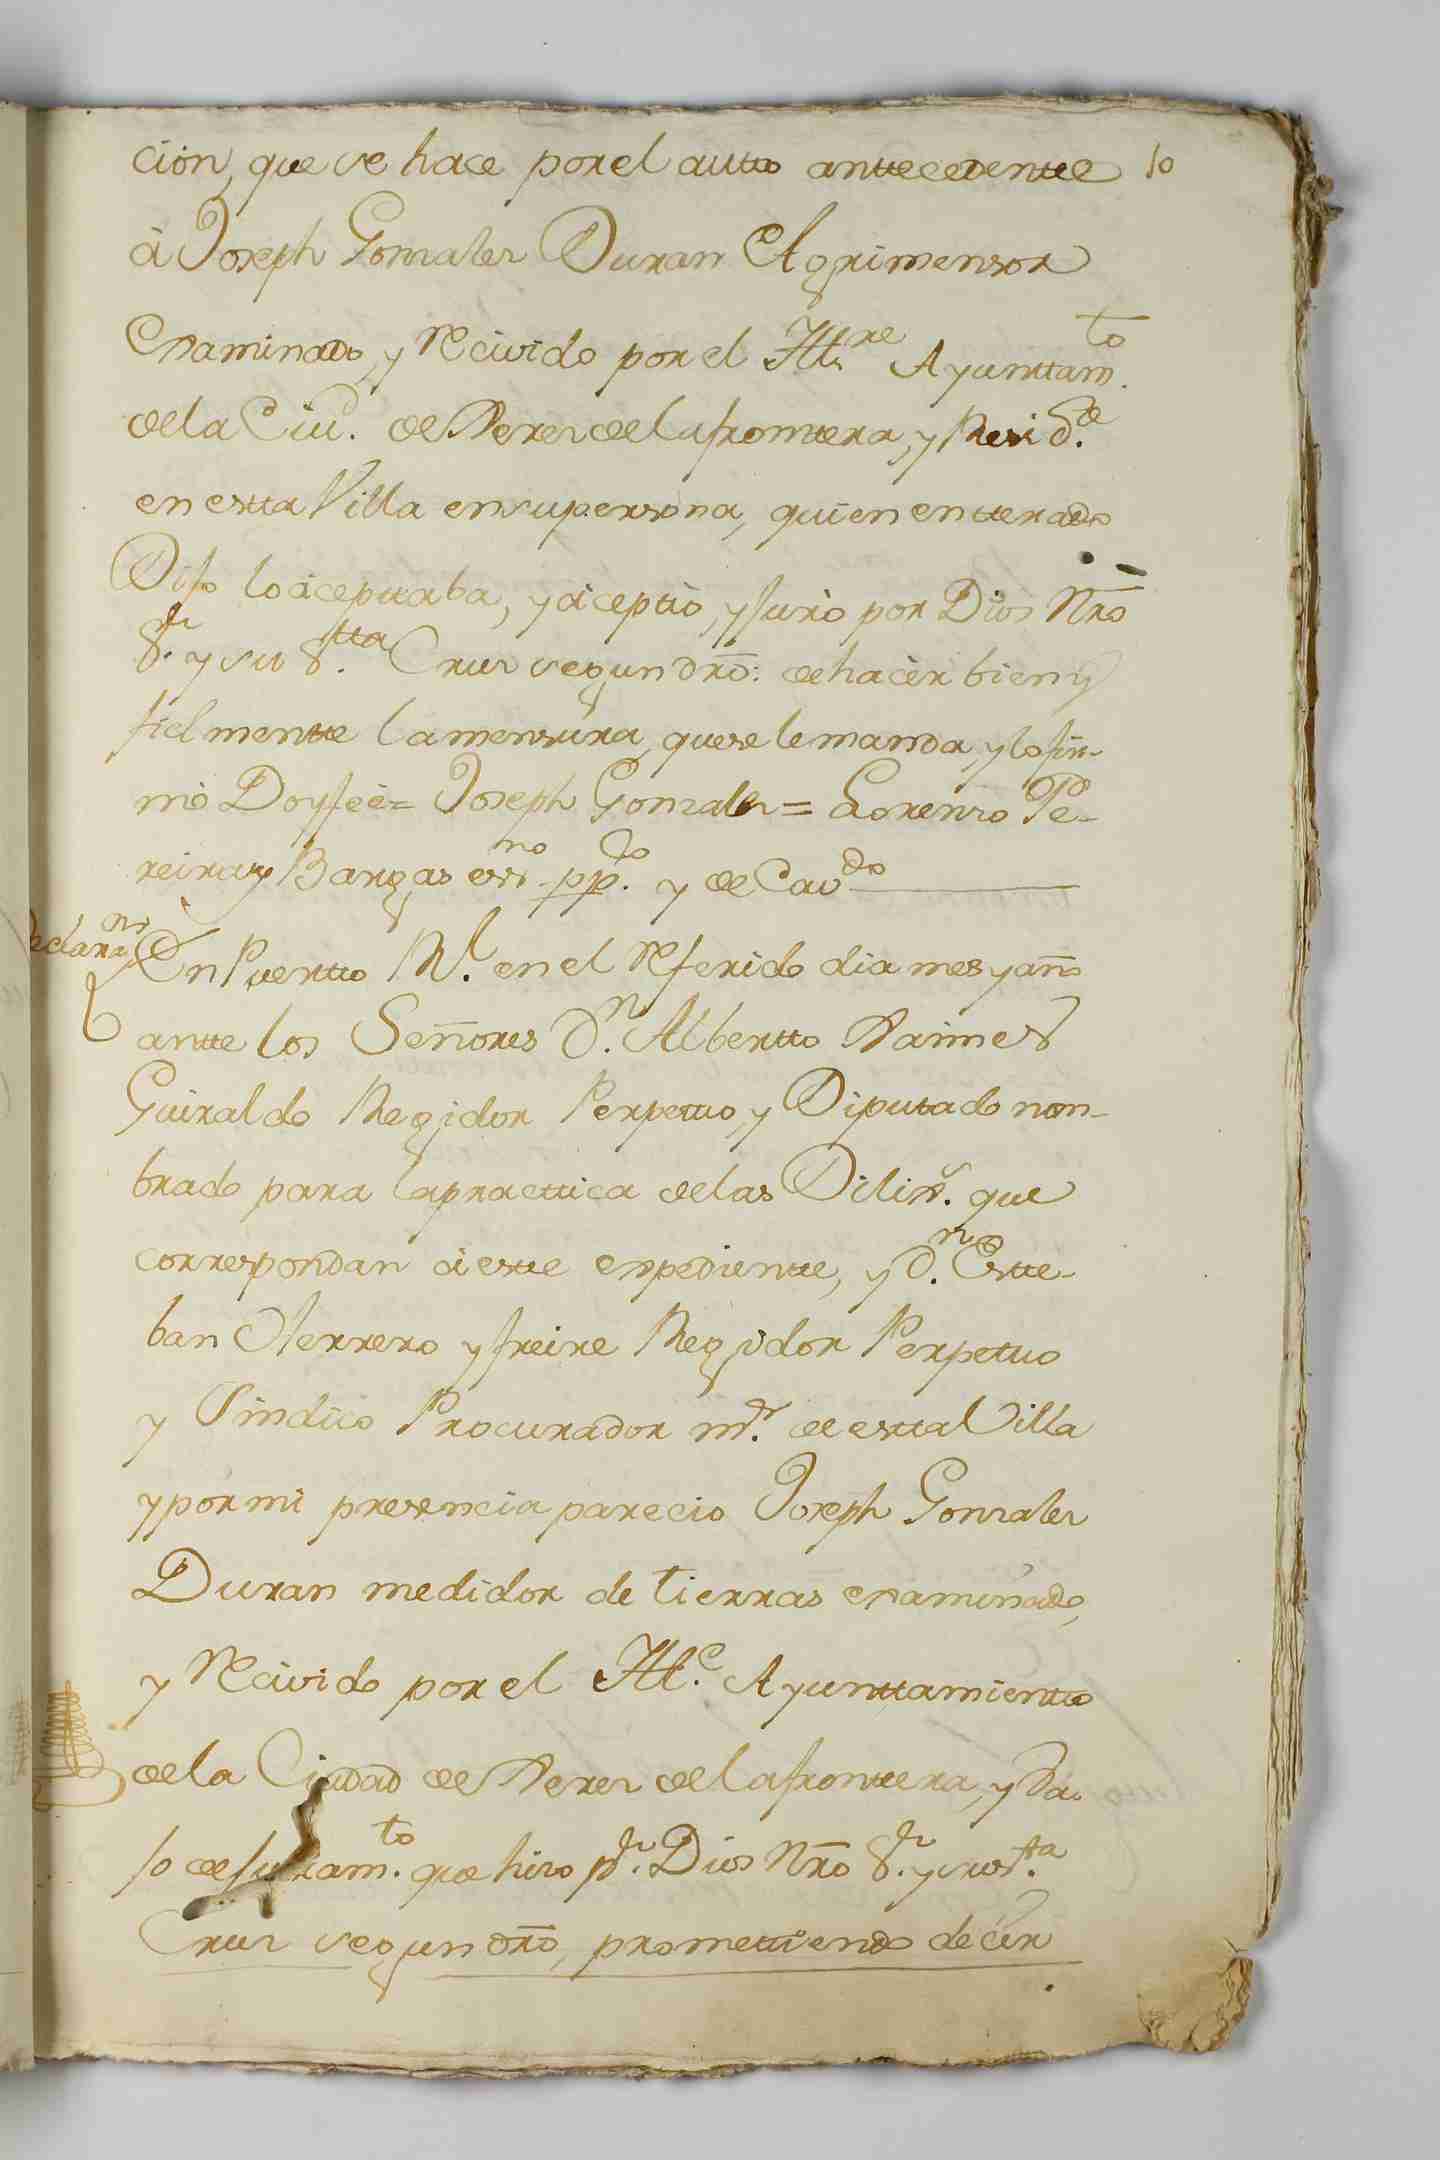 cion, que se hace por el autto anttecedentte 10
á Joseph Gonzalez Duran Agrimensor
Examinado, y recivido por el Iltre Ayunttam.to
de la Ciud. de Xerez de la frontera, y Resid.te
en estta Villa en su persona, quien entterado
Dijo lo âcepttaba, y âceptó, y juró por Dios Ntro
S.r y su S.tta Cruz segun dró: de hacer bien y
fielmentte la mensura, que se le manda, y lo fir-
mó Doy feé = Joseph Gonzalez = Lorenzo Pe-
reira y Bargas essno pp.co y de Cavdo
Declaraon En Puertto Rl. en el referido dia mes y año
antte los Señores D.n Albertto Jaimes
Guiraldo Regidor Perpetuo, y Diputado nom-
brado para la practtica de las Diliz.s que
correspondan á estte expedientte, y D.n Este-
ban Herrero y freire Regidor Perpetuo
y Sindico Procurador m.or de estta Villa
y por mi presencia parecio Joseph Gonzalez
Duran medidor de tierras examinado,
y recivido por el Ilt.e Ayunttamientto
de la Ciudad de Xerez de la fronttera, y Ba-
jo de juram.to que hizo p.r Dios Ntro S.r y su S.ta
Cruz segun dró, promettiendo decir